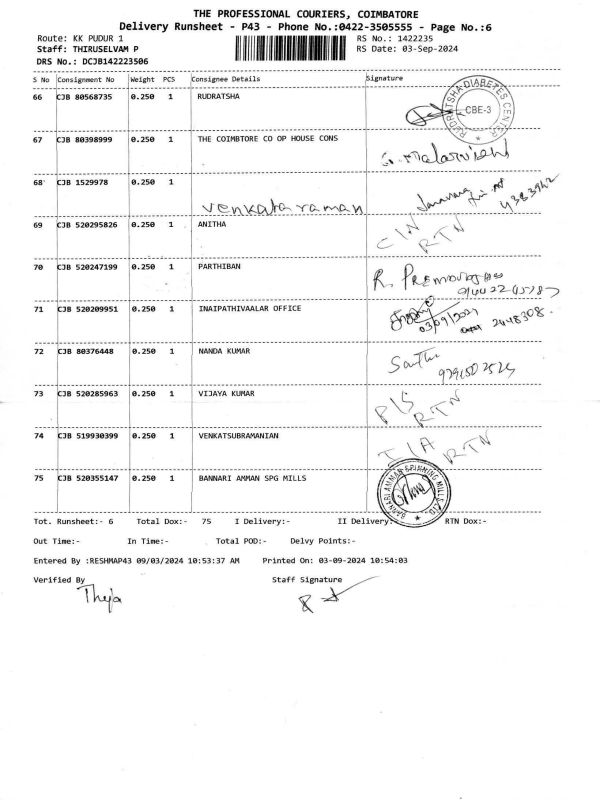 THE PROFESSIONAL COURIERS, COIMBATORE
Delivery Runsheet - P43 - Phone No.:0422-3505555 - Page No.:6
Route: KK PUDUR 1 RS No.: 1422235
Staff: THIRUSELVAM P RS Date: 03-Sep-2024
DRS No.: DCJB142223506
S No Consignment No Weight PCS Consignee Details Signature
66 CJB 80568735 0.250 1 RUDRATSHA
RUDRATSHA DIABETES CENTER CBE-3
67 CJB 80398999 0.250 1 THE COIMBTORE CO OP HOUSE CONS
68 CJB 1529978 0.250 1
Venkataraman
69 CJB 520295826 0.250 1 ANITHA
RTN
70 CJB 520247199 0.250 1 PARTHIBAN
R.
71 CJB 520209951 0.250 1 INAIPATHIVAALAR OFFICE
03/09/2024 2448308.
72 CJB 80376448 0.250 1 NANDA KUMAR
73 CJB 520285963 0.250 1 VIJAYA KUMAR
RTN
74 CJB 519930399 0.250 1 VENKATSUBRAMANIAN
RTN
75 CJB 520355147 0.250 1 BANNARI AMMAN SPG MILLS
BANNARI AMMAN SPINNING MILLS LTD.
Tot. Runsheet:- 6 Total Dox:- 75 I Delivery:- II Delivery:- RTN Dox:-
Out Time:- In Time:- Total POD:- Delvy Points:-
Entered By :RESHMAP43 09/03/2024 10:53:37 AM Printed On: 03-09-2024 10:54:03
Verified By Staff Signature